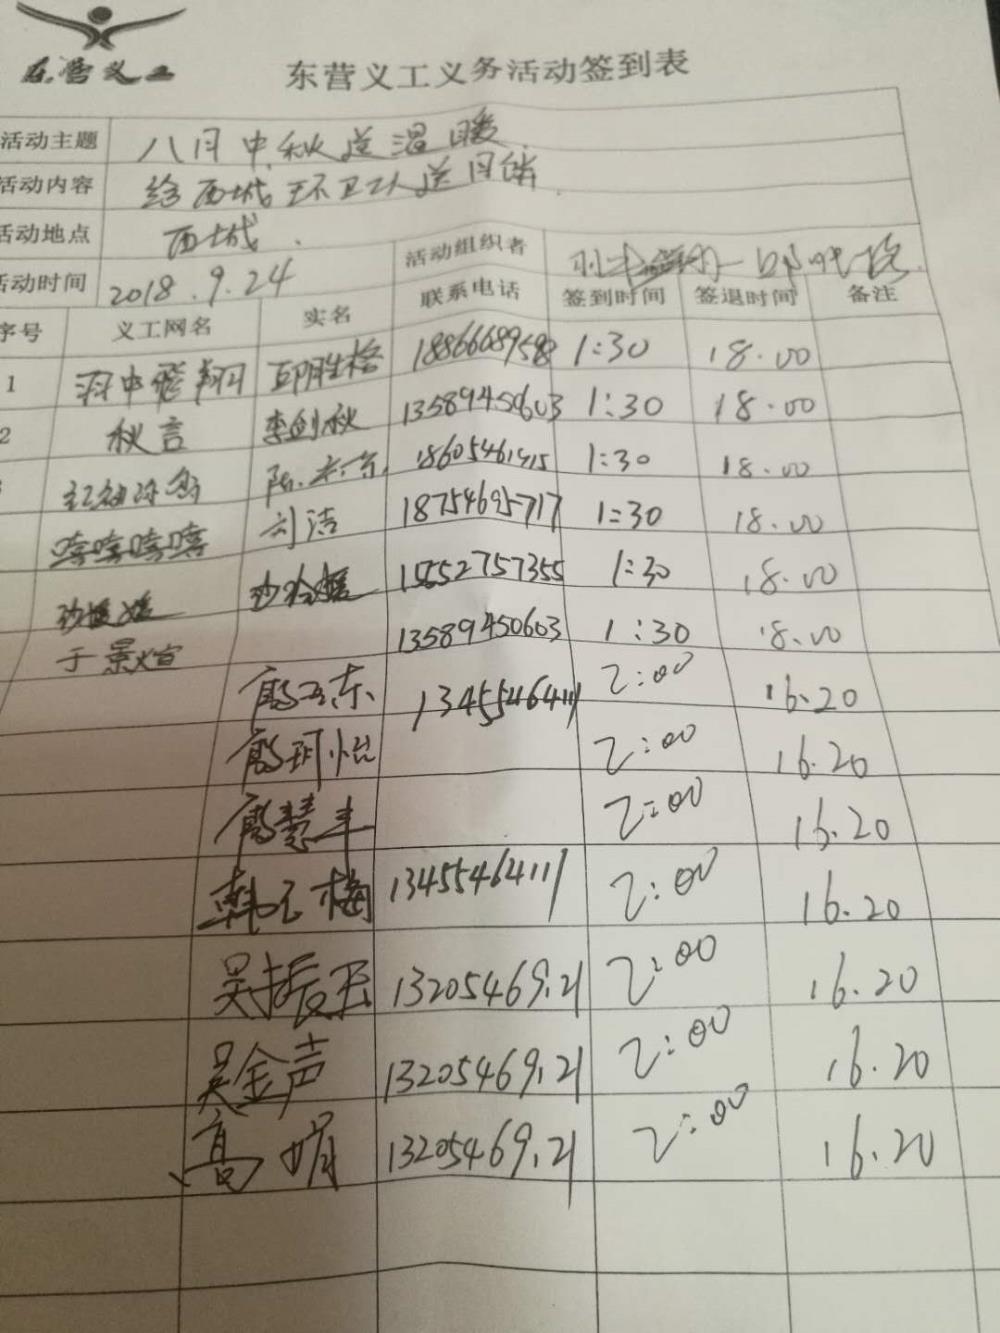 东营义工
东营义工义务活动签到表
活动主题 八月中秋送温暖
活动内容 给西城环卫工人送月饼
活动地点 西城.
活动时间 2018.9.24 活动组织者
序号 义工网名 实名 联系电话 签到时间 签退时间 备注
1 羽中飞翔 18866689588 1:30 18.00
2 秋言 李剑秋 13589450603 1:30 18.00
18605461415 1:30 18.00
嘻嘻嘻嘻 刘洁 18754695717 1:30 18.00
15552757355 1:30 18.00
于景煊 13589450603 1:30 18.00
13455464111 2:00 16.20
2:00 16.20
2:00 16.20
韩玉梅 13455464111 2:00 16.20
吴振玉 13205469.21 2:00 16.20
吴金声 13205469.21 2:00 16.20
高娟 13205469.21 2:00 16.20